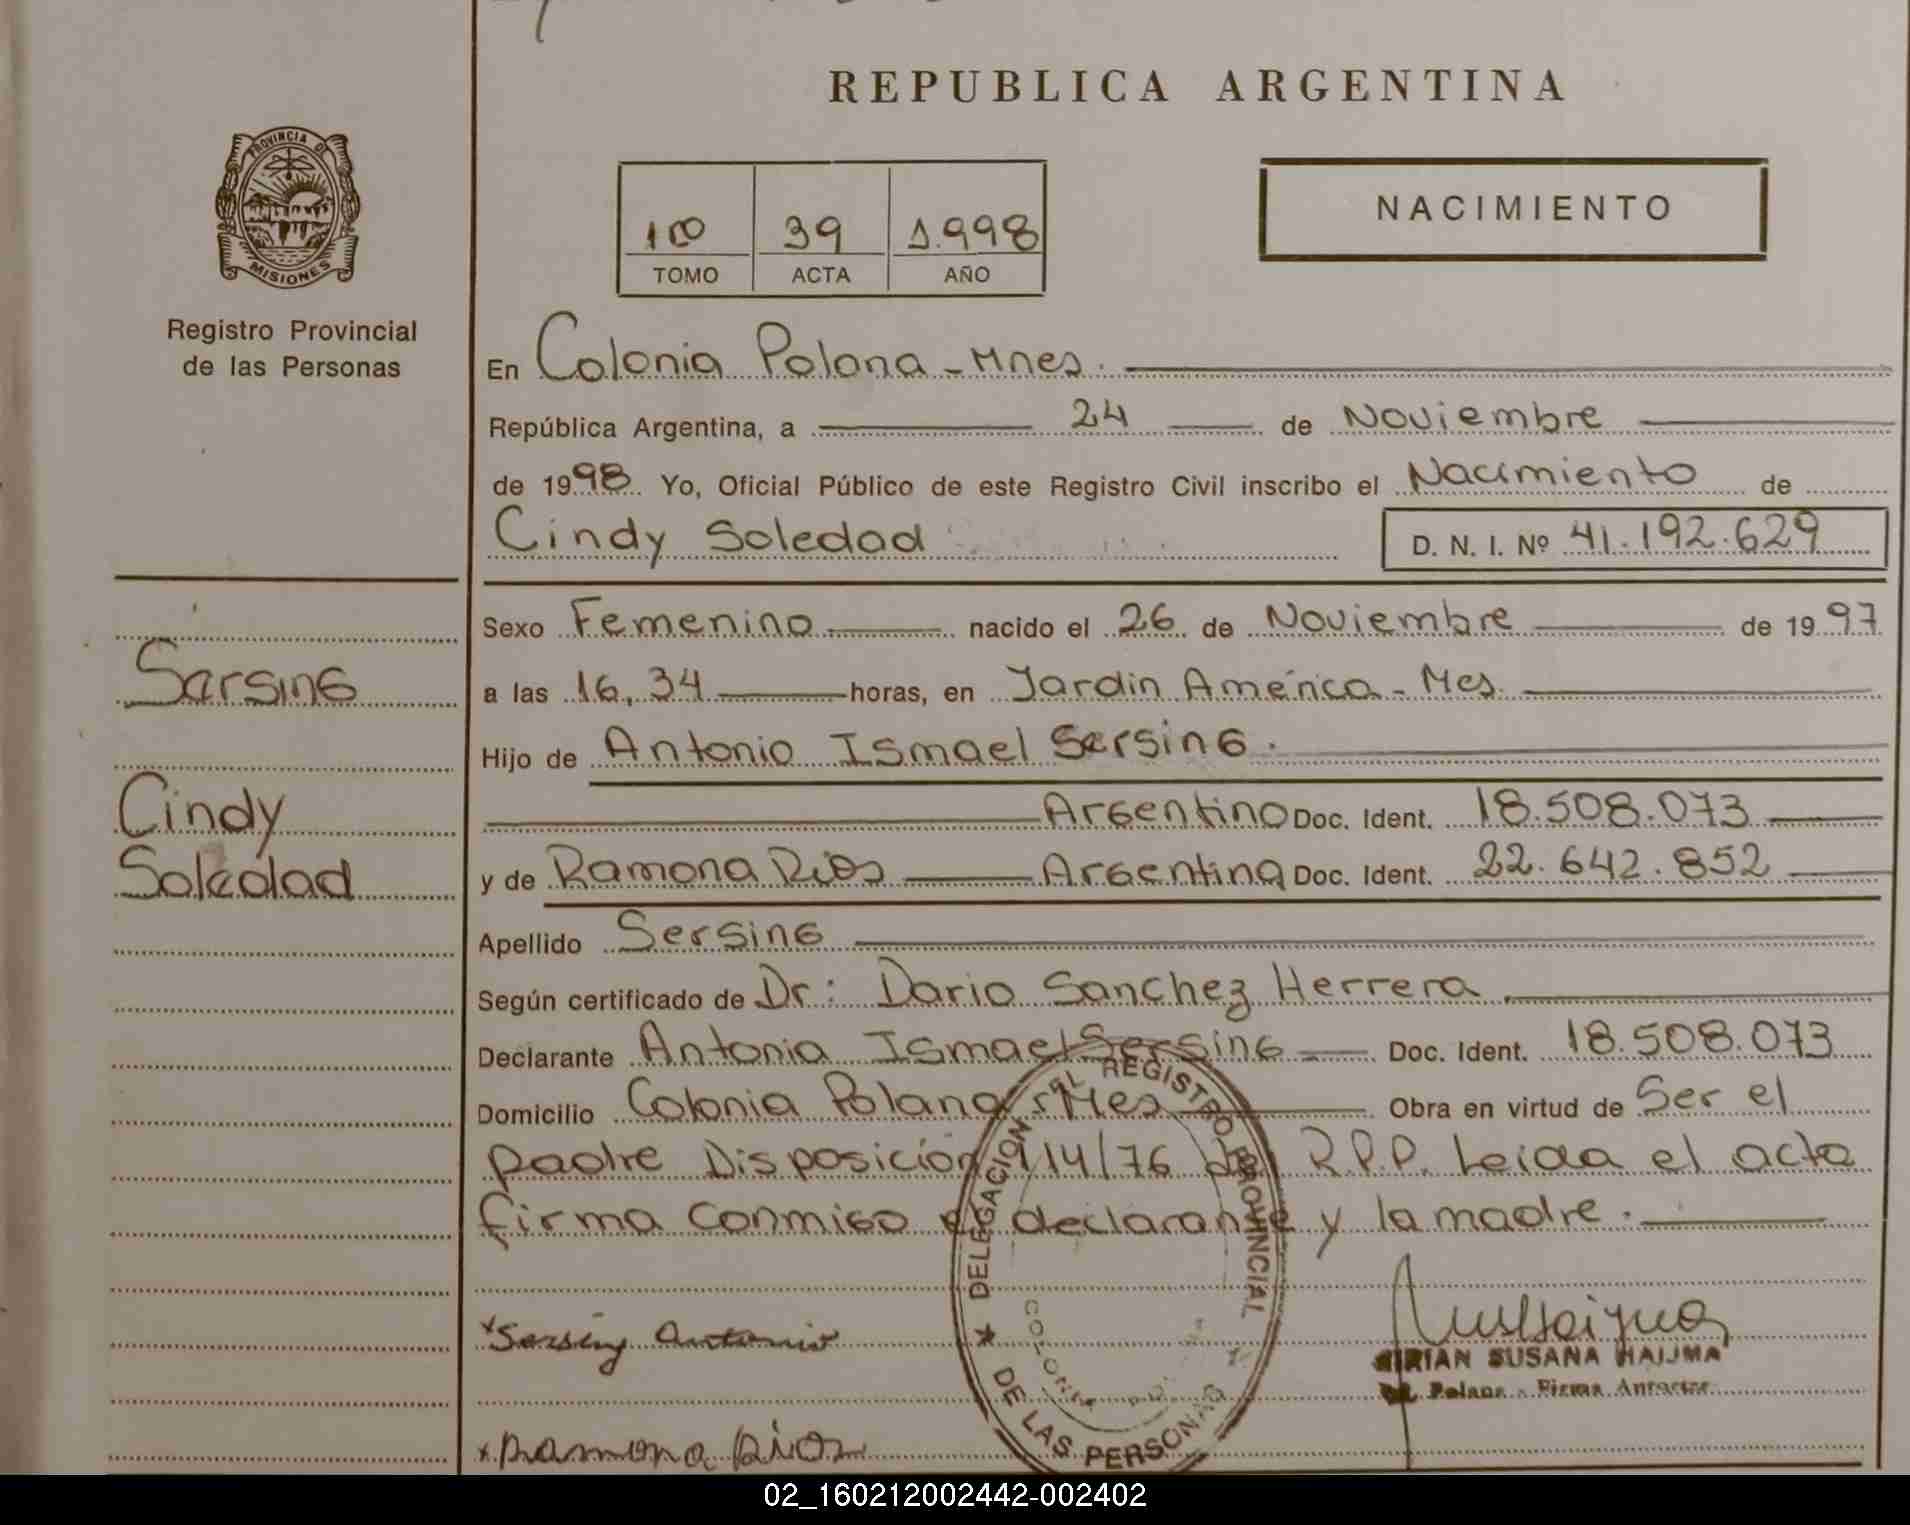 REPUBLICA ARGENTINA
PROVINCIA DE
MISIONES
Registro Provincial
de las Personas
100 39 1.998
TOMO ACTA AÑO
NACIMIENTO
En Colonia Polana - Mnes.
República Argentina, a 24 de Noviembre
de 1998 Yo, Oficial Público de este Registro Civil inscribo el Nacimiento de
Cindy Soledad D. N. I. Nº 41.192.629
Sersing
Cindy
Soledad
Sexo Femenino nacido el 26 de Noviembre de 1997
a las 16,34 horas, en Jardin América - Mes.
Hijo de Antonio Ismael Sersing.
Argentino Doc. Ident. 18.508.073
y de Ramona Rios Argentina Doc. Ident. 22.642.852
Apellido Sersing
Según certificado de Dr: Dario Sanchez Herrera
Declarante Antonia Ismael Sersing Doc. Ident. 18.508.073
Domicilio Colonia Polana - Mes Obra en virtud de Ser el
padre Disposición 114/76 del R.P.P. Leida el acta
firma conmigo el declarante y la madre.
DELEGACION DEL REGISTRO PROVINCIAL
DE LAS PERSONAS
COLONIA
Sersing Antonio
MIRIAN SUSANA HAIJMA
Polana - Firma
Ramona Rios
02_160212002442-002402